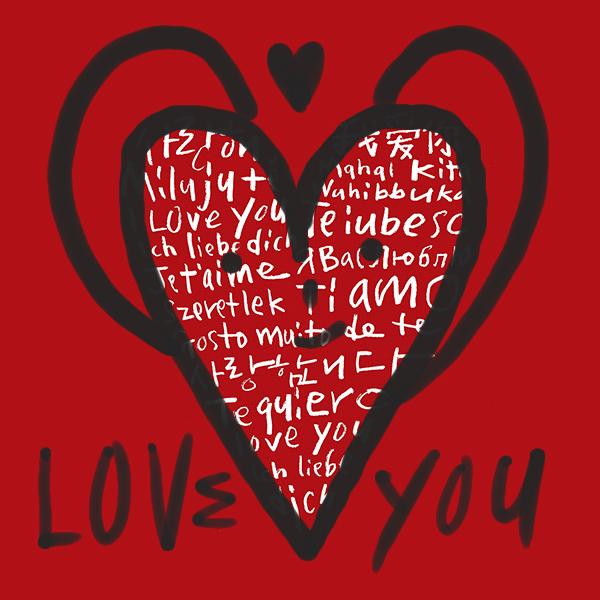 我爱你
Miluju t
ahal kit
Uhibbuka
Love you
Te iubesc
ch liebe dich
Я Вас люблю
Je t'aime
Ti amo
Szeretlek
Gosto muito de te
사랑합니다
Te quiero
Love you
ch liebe
dich
LOVE YOU